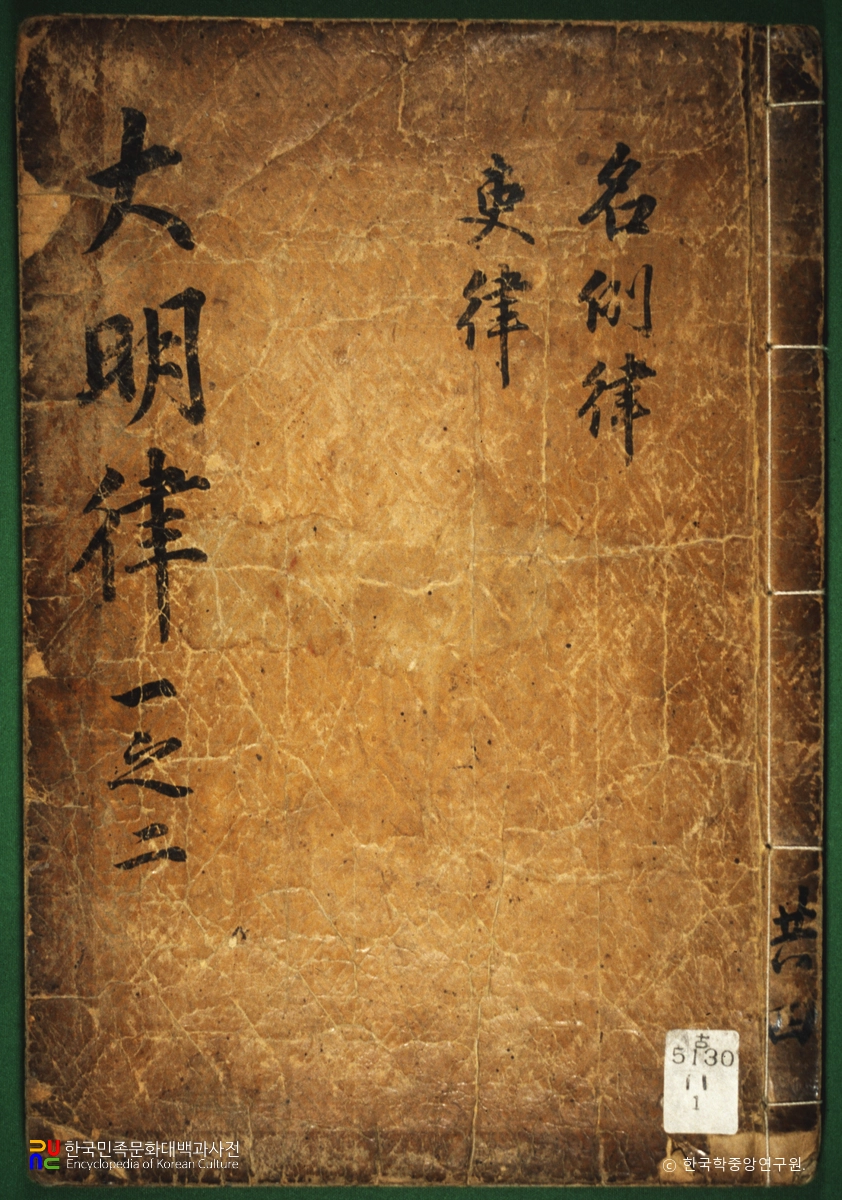 名例律
吏律
大明律 一之二
共四
古
5130
11
1
한국민족문화대백과사전
Encyclopedia of Korean Culture
© 한국학중앙연구원.